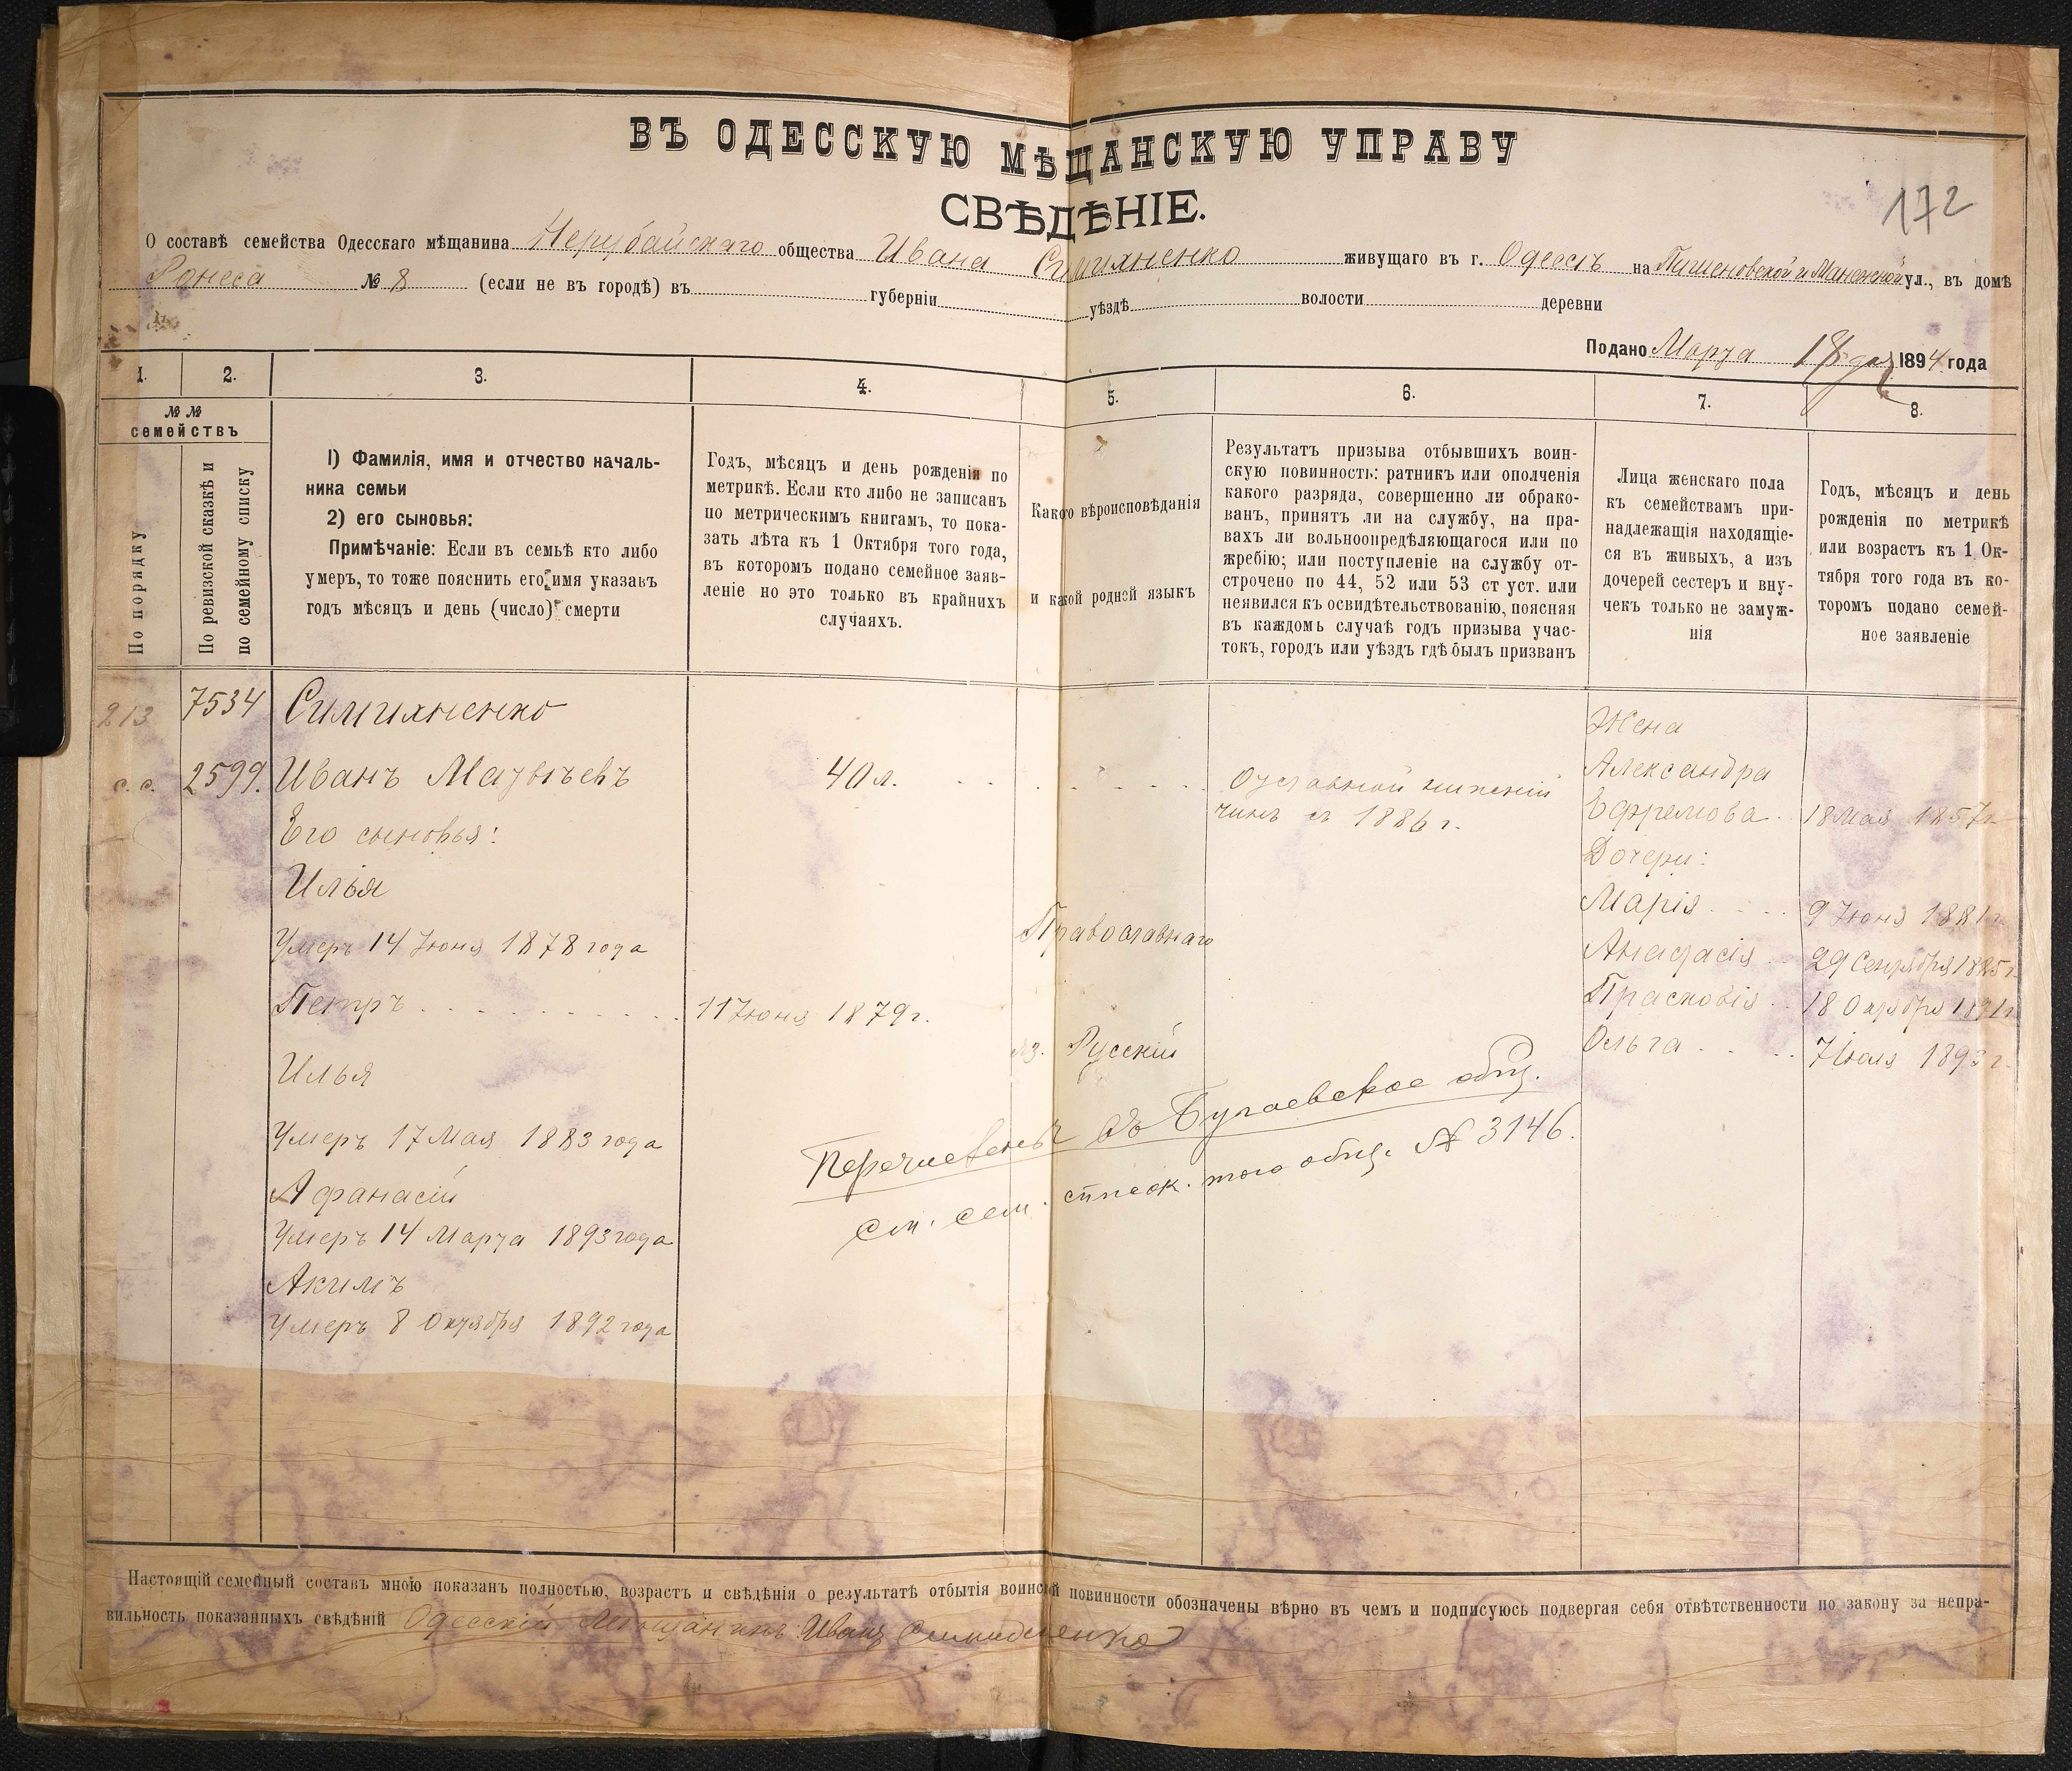 ВЪ ОДЕССКУЮ МѢЩАНСКУЮ УПРАВУ
СВѢДѢНІЕ.
172
О составѣ семейства Одесскаго мѣщанина Нерубайскаго общества Ивана Симихненко живущаго въ г. Одессѣ на и ул., въ домѣ
Ронеса № 8 (если не въ городѣ) въ губерніи уѣздѣ волости деревни
Подано Марта 18 дня 1894 года
1. 2. 3. 4. 5. 6. 7. 8.
№ №
семействъ
По порядку
По ревизской сказкѣ и
по семейному списку
1) Фамилія, имя и отчество началь-
ника семьи
2) его сыновья:
Примѣчаніе: Если въ семьѣ кто либо
умеръ, то тоже пояснить его имя указавъ
годъ мѣсяцъ и день (число) смерти
Годъ, мѣсяцъ и день рожденія по
метрикѣ. Если кто либо не записанъ
по метрическимъ книгамъ, то пока-
зать лѣта къ 1 Октября того года,
въ которомъ подано семейное заяв-
леніе но это только въ крайнихъ
случаяхъ.
Какого вѣроисповѣданія
и какой родной языкъ
Результатъ призыва отбывшихъ воин-
скую повинность: ратникъ или ополченія
какого разряда, совершенно ли обрако-
ванъ, принятъ ли на службу, на пра-
вахъ ли вольноопредѣляющагося или по
жребію; или поступленіе на службу от-
строчено по 44, 52 или 53 ст уст. или
неявился къ освидѣтельствованію, поясняя
въ каждомъ случаѣ годъ призыва учас-
токъ, городъ или уѣздъ гдѣ былъ призванъ
Лица женскаго пола
къ семействамъ при-
надлежащія находящіе-
ся въ живыхъ, а изъ
дочерей сестеръ и вну-
чекъ только не замуж-
нія
Годъ, мѣсяцъ и день
рожденія по метрикѣ
или возрастъ къ 1 Ок-
тября того года въ ко-
торомъ подано семей-
ное заявленіе
213 7534 Симихненко
с. с. 2599. Иванъ Матвѣевъ 40 л.
Его сыновья:
Илья
Умеръ 14 Іюня 1878 года
Петръ 11 Іюня 1879 г.
Илья
Умеръ 17 Мая 1883 года
Афанасій
Умеръ 14 Марта 1893 года
Акимъ
Умеръ 8 Октября 1892 года
Православнаго
яз. Русскій
Отставной нижній
чинъ съ 1886 г.
Жена
Александра
Ефремова 18 Мая 1857 г.
Дочери:
Марія 9 Іюня 1881 г.
Анастасія 29 Сентября 1885 г.
Прасковія 18 Октября 1891 г.
Ольга 7 Іюля 1893 г.
Перечисленъ въ Бугаевское общ.
см. сем. списк. того общ. № 3146.
Настоящій семейный составъ мною показанъ полностью, возрастъ и свѣдѣнія о результатѣ отбытія воинской повинности обозначены вѣрно въ чемъ и подписуюсь подвергая себя отвѣтственности по закону за непра-
вильность показанныхъ свѣдѣній Одесскій Мѣщанинъ Иванъ